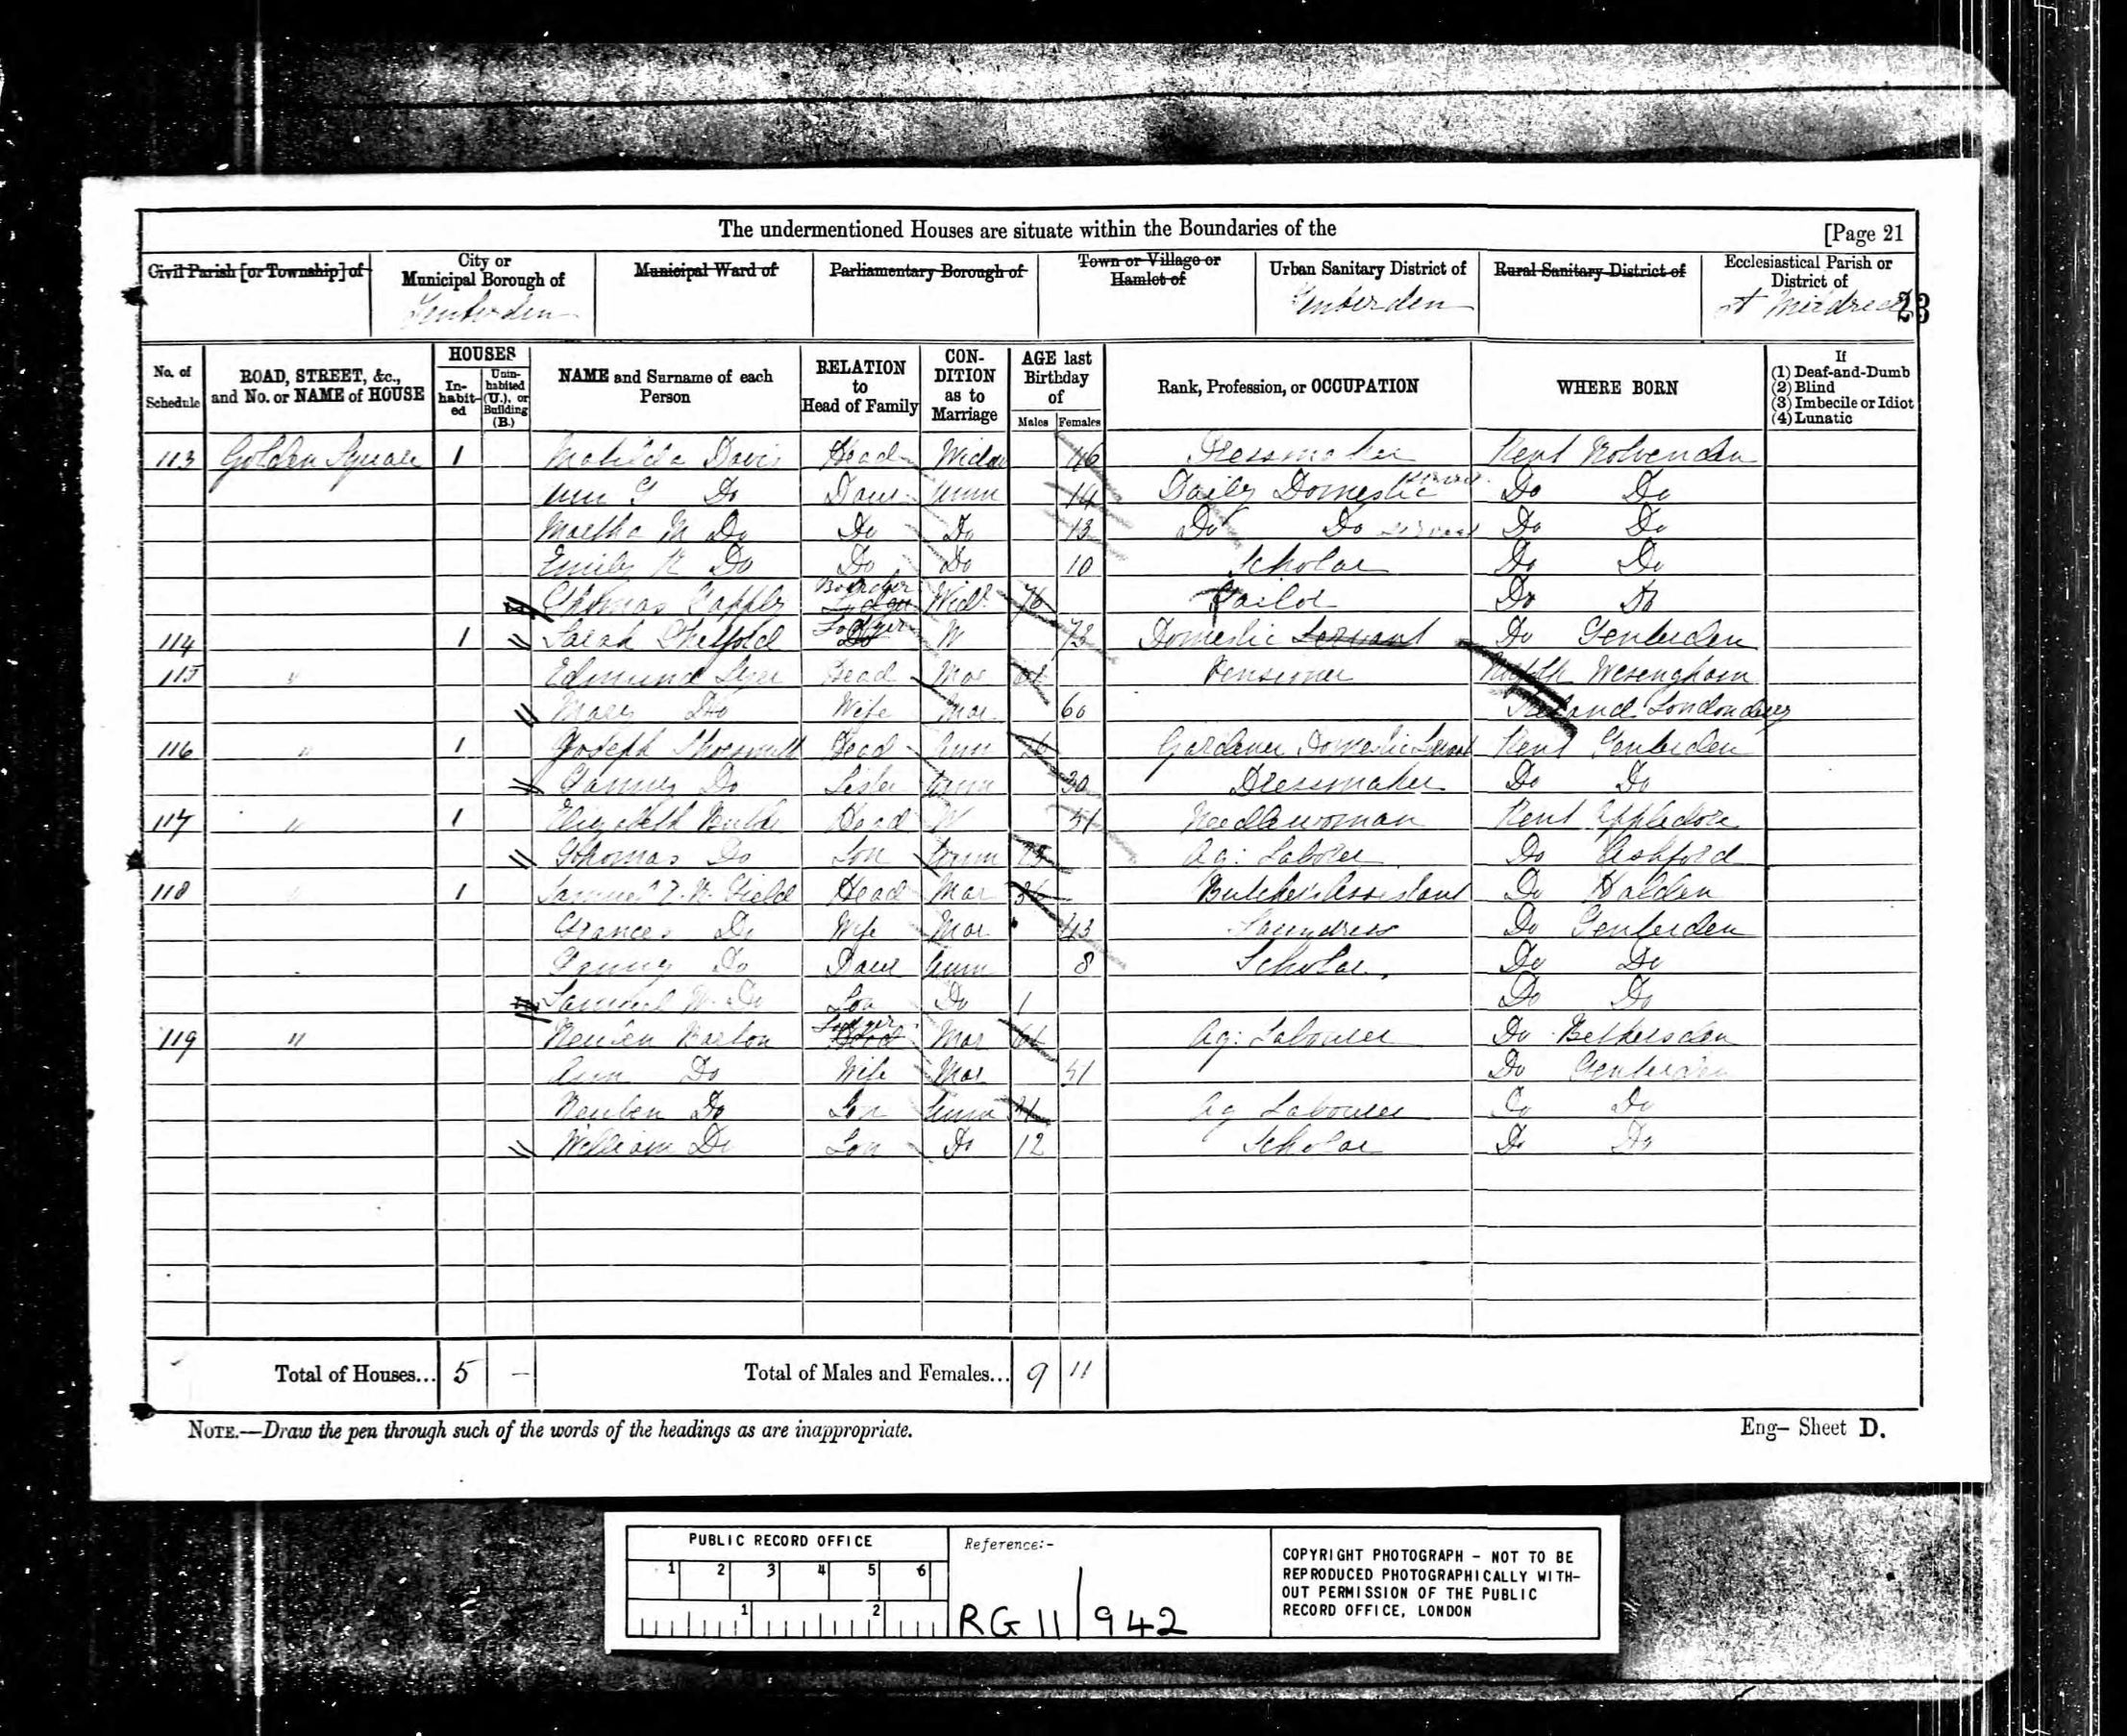 The undermentioned Houses are situate within the Boundaries of the [Page 21
Civil Parish [or Township] of
City or Municipal Borough of Tenterden
Municipal Ward of
Parliamentary Borough of
Town or Village or Hamlet of
Urban Sanitary District of Tenterden
Rural Sanitary District of
Ecclesiastical Parish or District of St Mildred
23
No. of Schedule
ROAD, STREET, &c., and No. or NAME of HOUSE
HOUSES
In-habit-ed
Unin-habited (U.), or Building (B.)
NAME and Surname of each Person
RELATION to Head of Family
CON-DITION as to Marriage
AGE last Birthday of
Males Females
Rank, Profession, or OCCUPATION
WHERE BORN
If
(1) Deaf-and-Dumb
(2) Blind
(3) Imbecile or Idiot
(4) Lunatic
113 Golden Square 1 Matilda Davis Head Widow 46 Dressmaker Kent Rolvenden
Ann Do Daur Unm 14 Daily Domestic Do Do
Martha M Do Do Do 13 Do Do Servant Do Do
Emily Do Do Do 10 Scholar Do Do
Thomas Boarder Widr 76 Tailor Do Do
114 1 Sarah Lodger Do W 73 Domestic Servant Do Tenterden
115 " Edmund Head Mar Pensioner Norfolk
Mary Do Wife Mar 60 Ireland Londonderry
116 " 1 Joseph Head Unm Gardener Domestic Servant Kent Tenterden
Fanny Do Sister Unm 30 Dressmaker Do Do
117 " 1 Elizabeth Head W 51 Needlewoman Kent Appledore
Thomas Do Son Unm Ag: Laborer Do Ashford
118 " 1 Samuel Field Head Mar Butchers Assistant Do Halden
Frances Do Wife Mar 43 Laundress Do Tenterden
Fanny Do Daur Unm 8 Scholar Do Do
Samuel W. Do Son Do 1 Do Do
119 " Reuben Barton Lodger Mar Ag: Labourer Do Bethersden
Ann Do Wife Mar 51 Do Tenterden
Reuben Do Son Unm 21 Ag Labourer Do Do
William Do Son Do 12 Scholar Do Do
Total of Houses... 5 – Total of Males and Females... 9 11
NOTE.—Draw the pen through such of the words of the headings as are inappropriate.
Eng– Sheet D.
PUBLIC RECORD OFFICE
1 2 3 4 5 6
1 2
Reference:-
RG 11/942
COPYRIGHT PHOTOGRAPH - NOT TO BE
REPRODUCED PHOTOGRAPHICALLY WITH-
OUT PERMISSION OF THE PUBLIC
RECORD OFFICE, LONDON